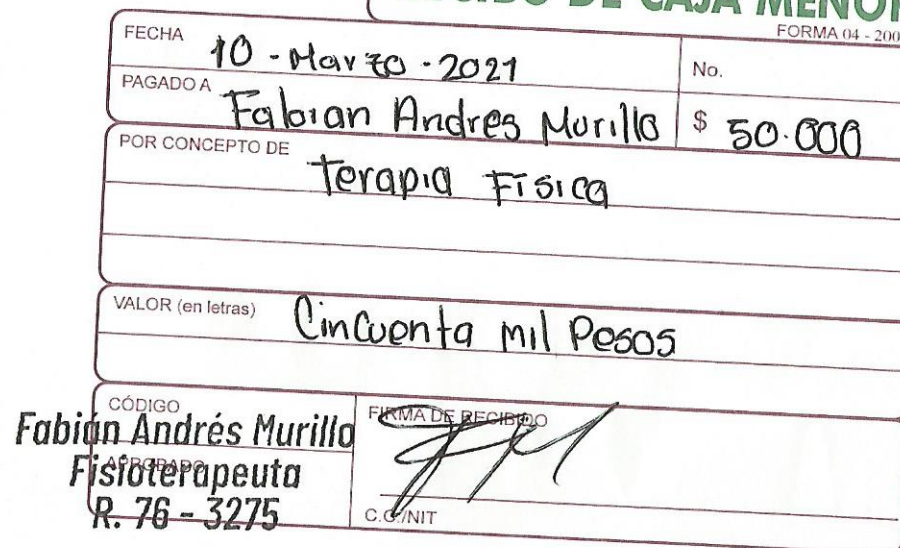 RECIBO DE CAJA MENOR
FORMA 04 - 200
FECHA 10 - Marzo - 2021
No.
PAGADO A Fabian Andres Murillo $ 50.000
POR CONCEPTO DE Terapia Física
VALOR (en letras) Cincuenta mil Pesos
CÓDIGO
FIRMA DE RECIBIDO
Fabián Andrés Murillo
APROBADO
Fisioterapeuta
R. 76 - 3275
C.C./NIT